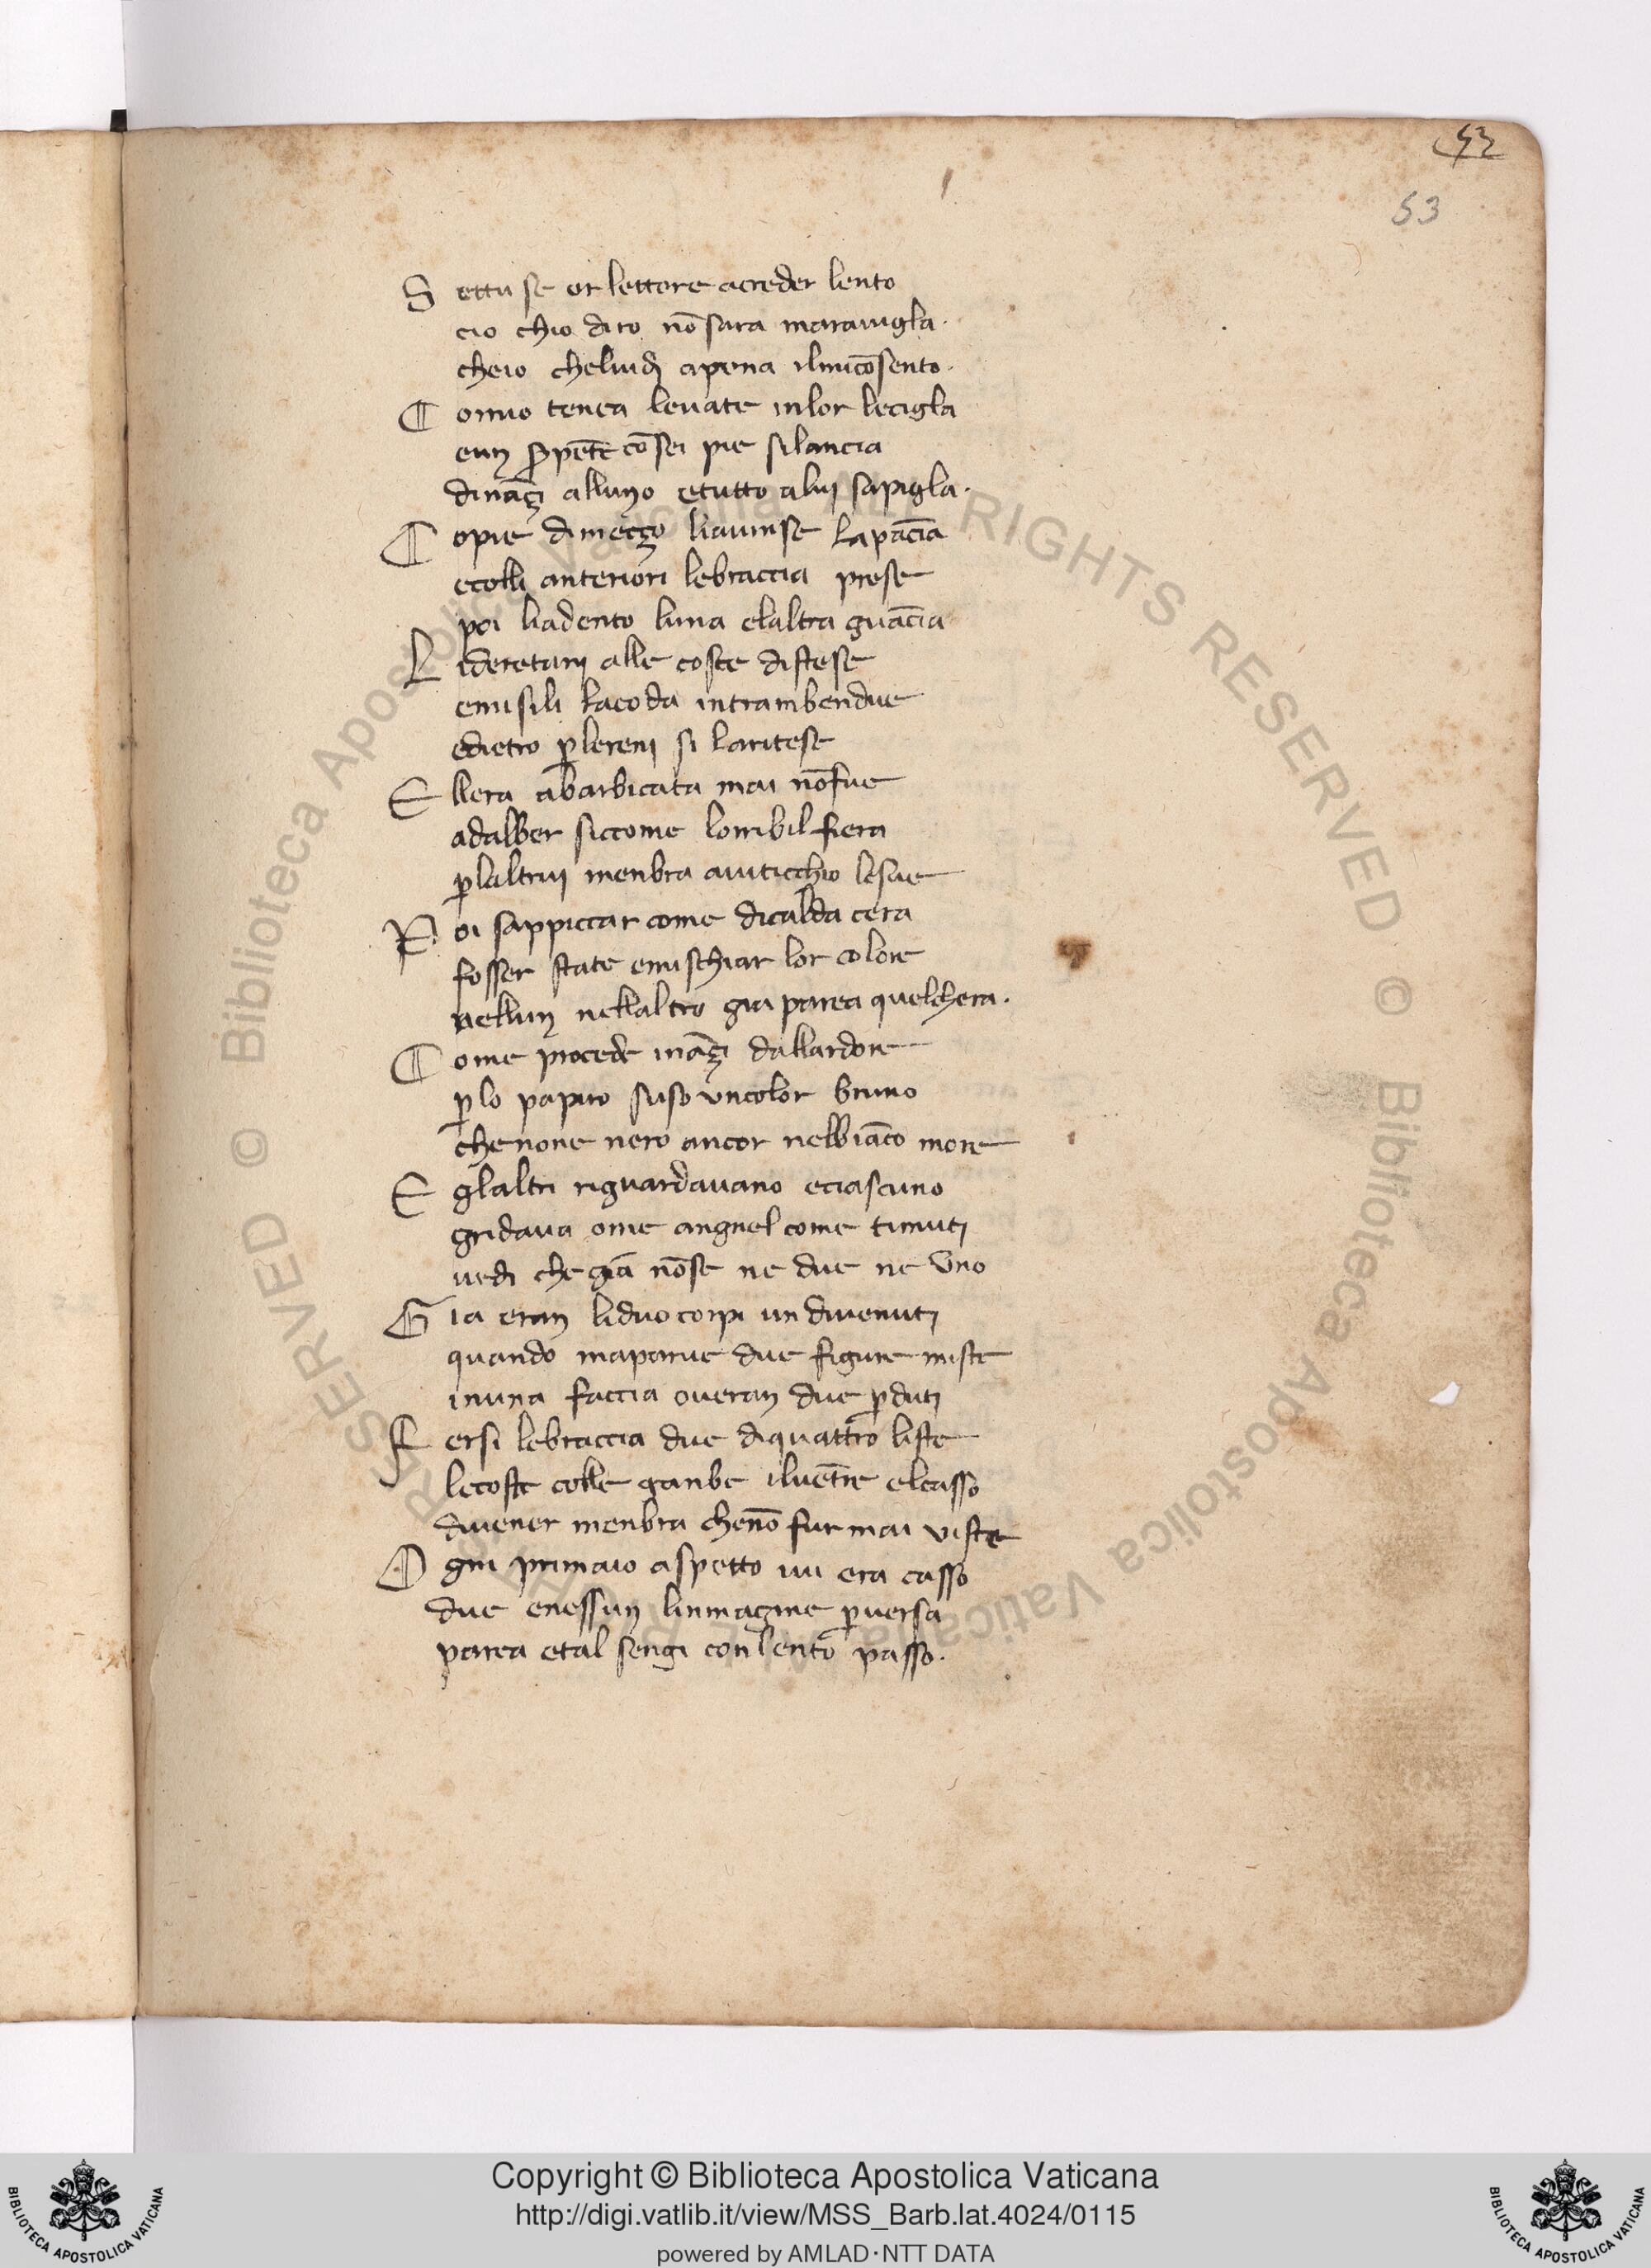 52
53
S ettu se or lettore acreder lento
cio chio diro nō sara marauigla.
cheio cheluidi apena ilmicōsento.
C omio tenea leuate inlor lecigla
eun s̄pēte cō sei pie silancia
dināçi alluno etutto alui sapigla.
C opie dimeçço liauinse lapācia
ecolli anteriori lebraccia prese
poi liadento luna elaltra guācia
L ideretani alle coste distese
emisili lacoda intrambendue
edietro p̱lereni si laritese
E llera abarbicata mai nō fue
adalber siccome lorribil fiera
p̱laltrui menbra auiticchio lesue
P oi sappiccar come dicalda cera
fosser state emischiar lor colore
nellun nellaltro gia parea quelchera.
C ome procede ināçi dallardore
p̱ lo papiro suso vncolor bruno
chenone nero ancor nelbiāco more
E glaltri riguardauano eciascuno
gridaua ome angnel come timuti
uedi che gia nōse ne due ne vno
G ia eran liduo corpi un diuenuti
quando maparue due figure miste
inuna faccia oueran due p̱duti
F ersi lebraccia due diquattro liste
lecoste colle ganbe iluētre elcasso
diuener menbra chenō fur mai viste
O gni primaio aspetto iui era casso
due enessun linmagine p̱uersa
parea etal sengi con lento passo.
© Biblioteca Apostolica Vaticana ALL RIGHTS RESERVED © Biblioteca Apostolica Vaticana ALL RIGHTS RESERVED
Copyright © Biblioteca Apostolica Vaticana
http://digi.vatlib.it/view/MSS_Barb.lat.4024/0115
powered by AMLAD·NTT DATA
BIBLIOTECA APOSTOLICA VATICANA
BIBLIOTECA APOSTOLICA VATICANA